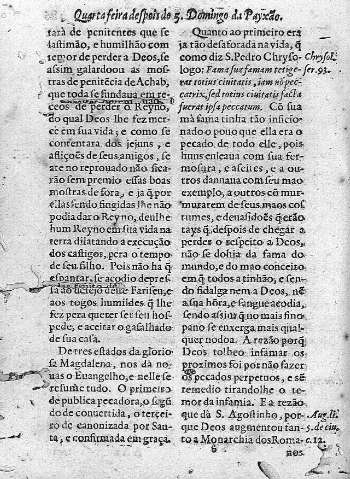 Quarta feira despois do 5. Domingo da Payxão.
tará de penitentes que se
lastimão, e humilhão com
temor de perder a Deos, se
assim galardoou as mos-
tras de penitẽcia de Achab,
que toda se fundaua em re-
ceos de perder o Reyno,
do qual Deos lhe fez mer-
ce em sua vida; e como se
contentara dos jejuns, e
aflições de seus amigos, se
ate no reprouado não fica-
rão sem premio essas boas
mostras de fora, e ja q̃ por
ellas sendo fingidas lhe não
podia dar o Reyno, deulhe
hum Reyno em sita vida na
terra dilatando a execução
dos castigos, pera o tempo
de seu filho. Pois não ha q̃
espantar, se acodio depres-
sa ao desejo deste Fariseu, e
aos rogos humildes q̃ lhe
fez pera queter ser seu hos-
pede, e aceitar o gasalhado
de sua casa.
De tres estados da glorio-
sa Magdalena, nos dá no-
uas o Euangelho, e nelle se
resume tudo. O primeiro
de publica pecadora, o segũ
do de conuertida, o tercei-
ro de canonizada por San-
ta, e confirmada em graça.
Quanto ao primeiro era
ja tão desaforada na vida, q̃
como diz S. Pedro Chryso-
logo: Fama sua famam tetige-
rat totius ciuitatis, iam nõ pec-
catrix, sed totius ciuitatis facta
fuerat ipsa peccatum. Cõ sua
má fama tinha tão inficio-
nado o pouo que ella era o
pecado de todo elle, pois
huns enleaua com sua fer-
mosura, e afeites, e a ou-
tros dannaua com seu mao
exemplo, a outros cũ mur-
muratem de seus maos cos-
tumes, e deuassidoẽs q̃ erão
tays q̃, despois de chegar a
perder o respeito a Deos,
não se dohia da fama do
mundo, e do mao conceito
em q̃ todos a tinhão, e sen-
do fidalga nem a Deos, nẽ
a sua hõra, e sangue acodia,
sendo assim q̃ no mais fino
pano se enxerga mais qual-
quer nodoa. A rezão porq̃
Deos tolheo infamar os
proximos foi por não fazer
os pecados perpetuos, e sẽ
remedio tirandolhe o te-
mor da infamia. E a rezão
que dà S. Agostinho, por-
que Deos augmentou tan-
to a Monarchia dos Roma-
nos
Chrysol.
ser. 93.
Aug. li.
5. de ciu.
c. 12.